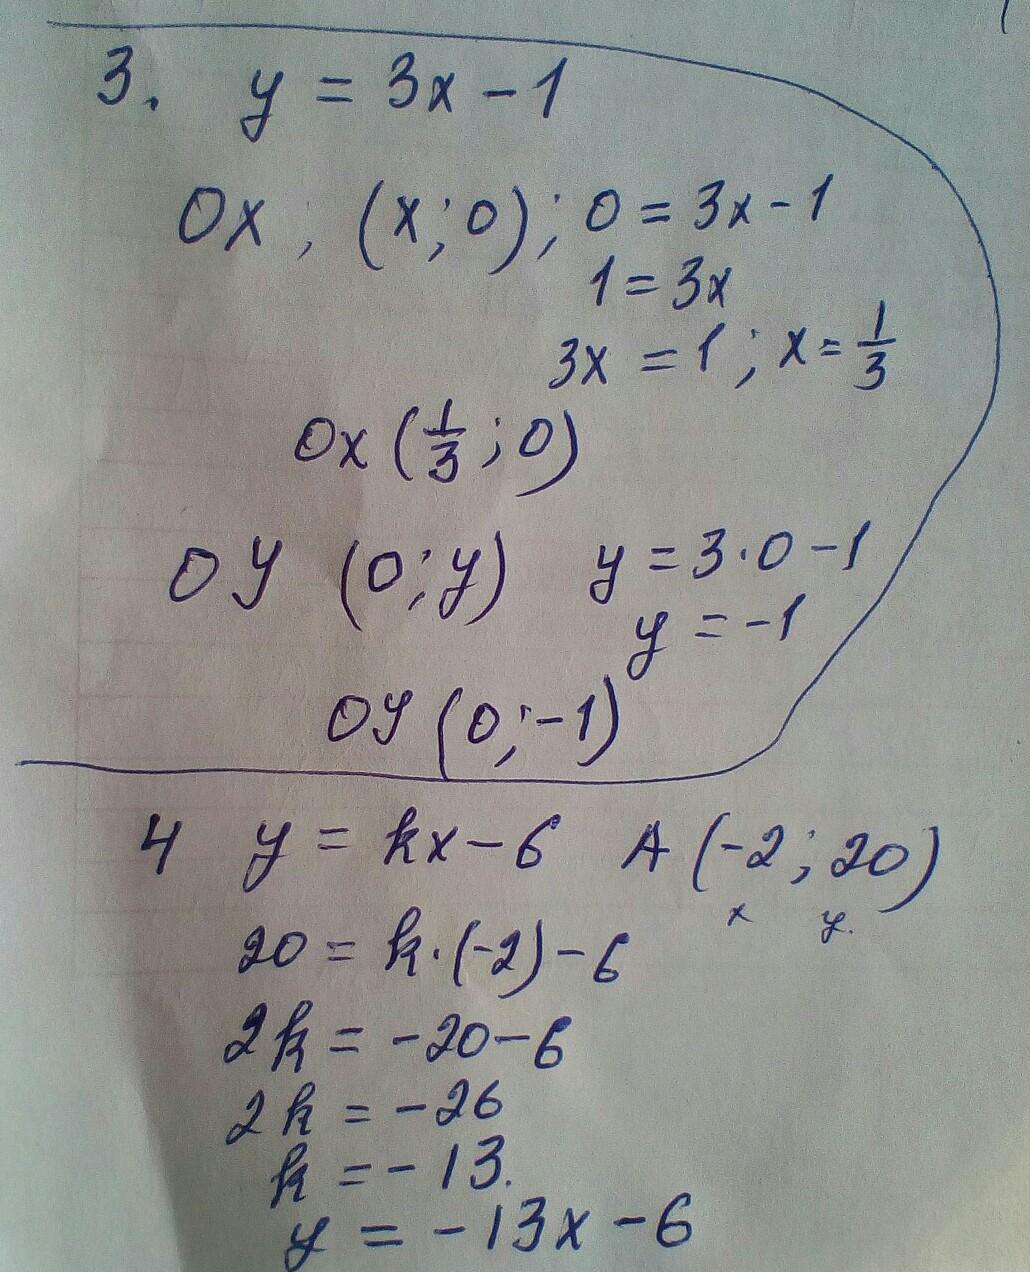 3. y = 3x - 1
Ox, (x; 0); 0 = 3x - 1
1 = 3x
3x = 1; x = 1/3
Ox (1/3; 0)
Oy (0; y) y = 3·0 - 1
y = -1
Oy (0; -1)
4 y = kx - 6 A (-2; 20)
x y.
20 = k·(-2) - 6
2k = -20 - 6
2k = -26
k = -13.
y = -13x - 6